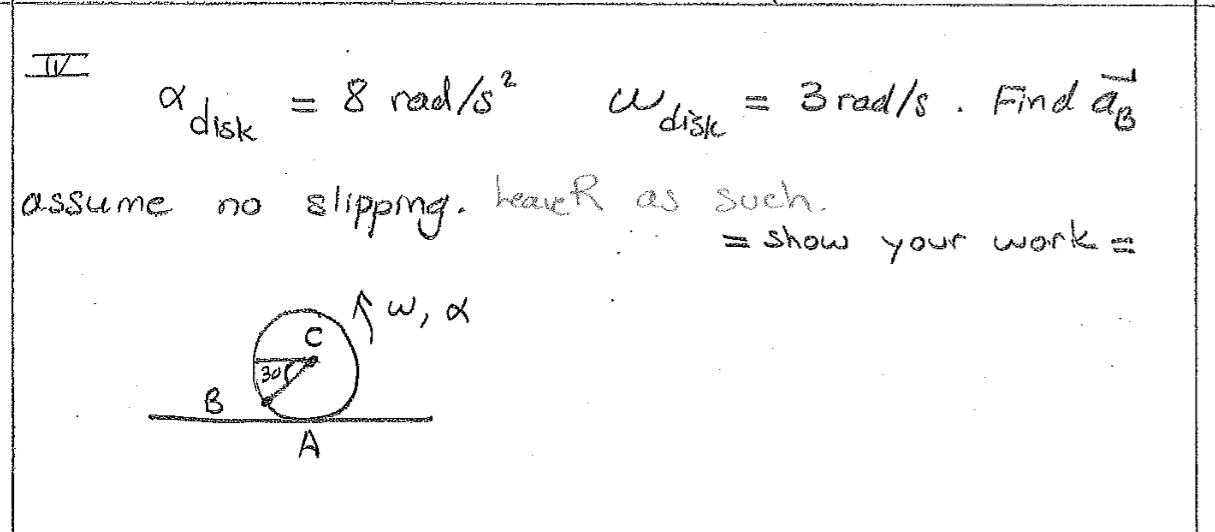 IV
α disk = 8 rad/s² ω disk = 3 rad/s . Find a⃗B
assume no slipping. Leave R as such.
= show your work =
ω, α
C
30
B
A